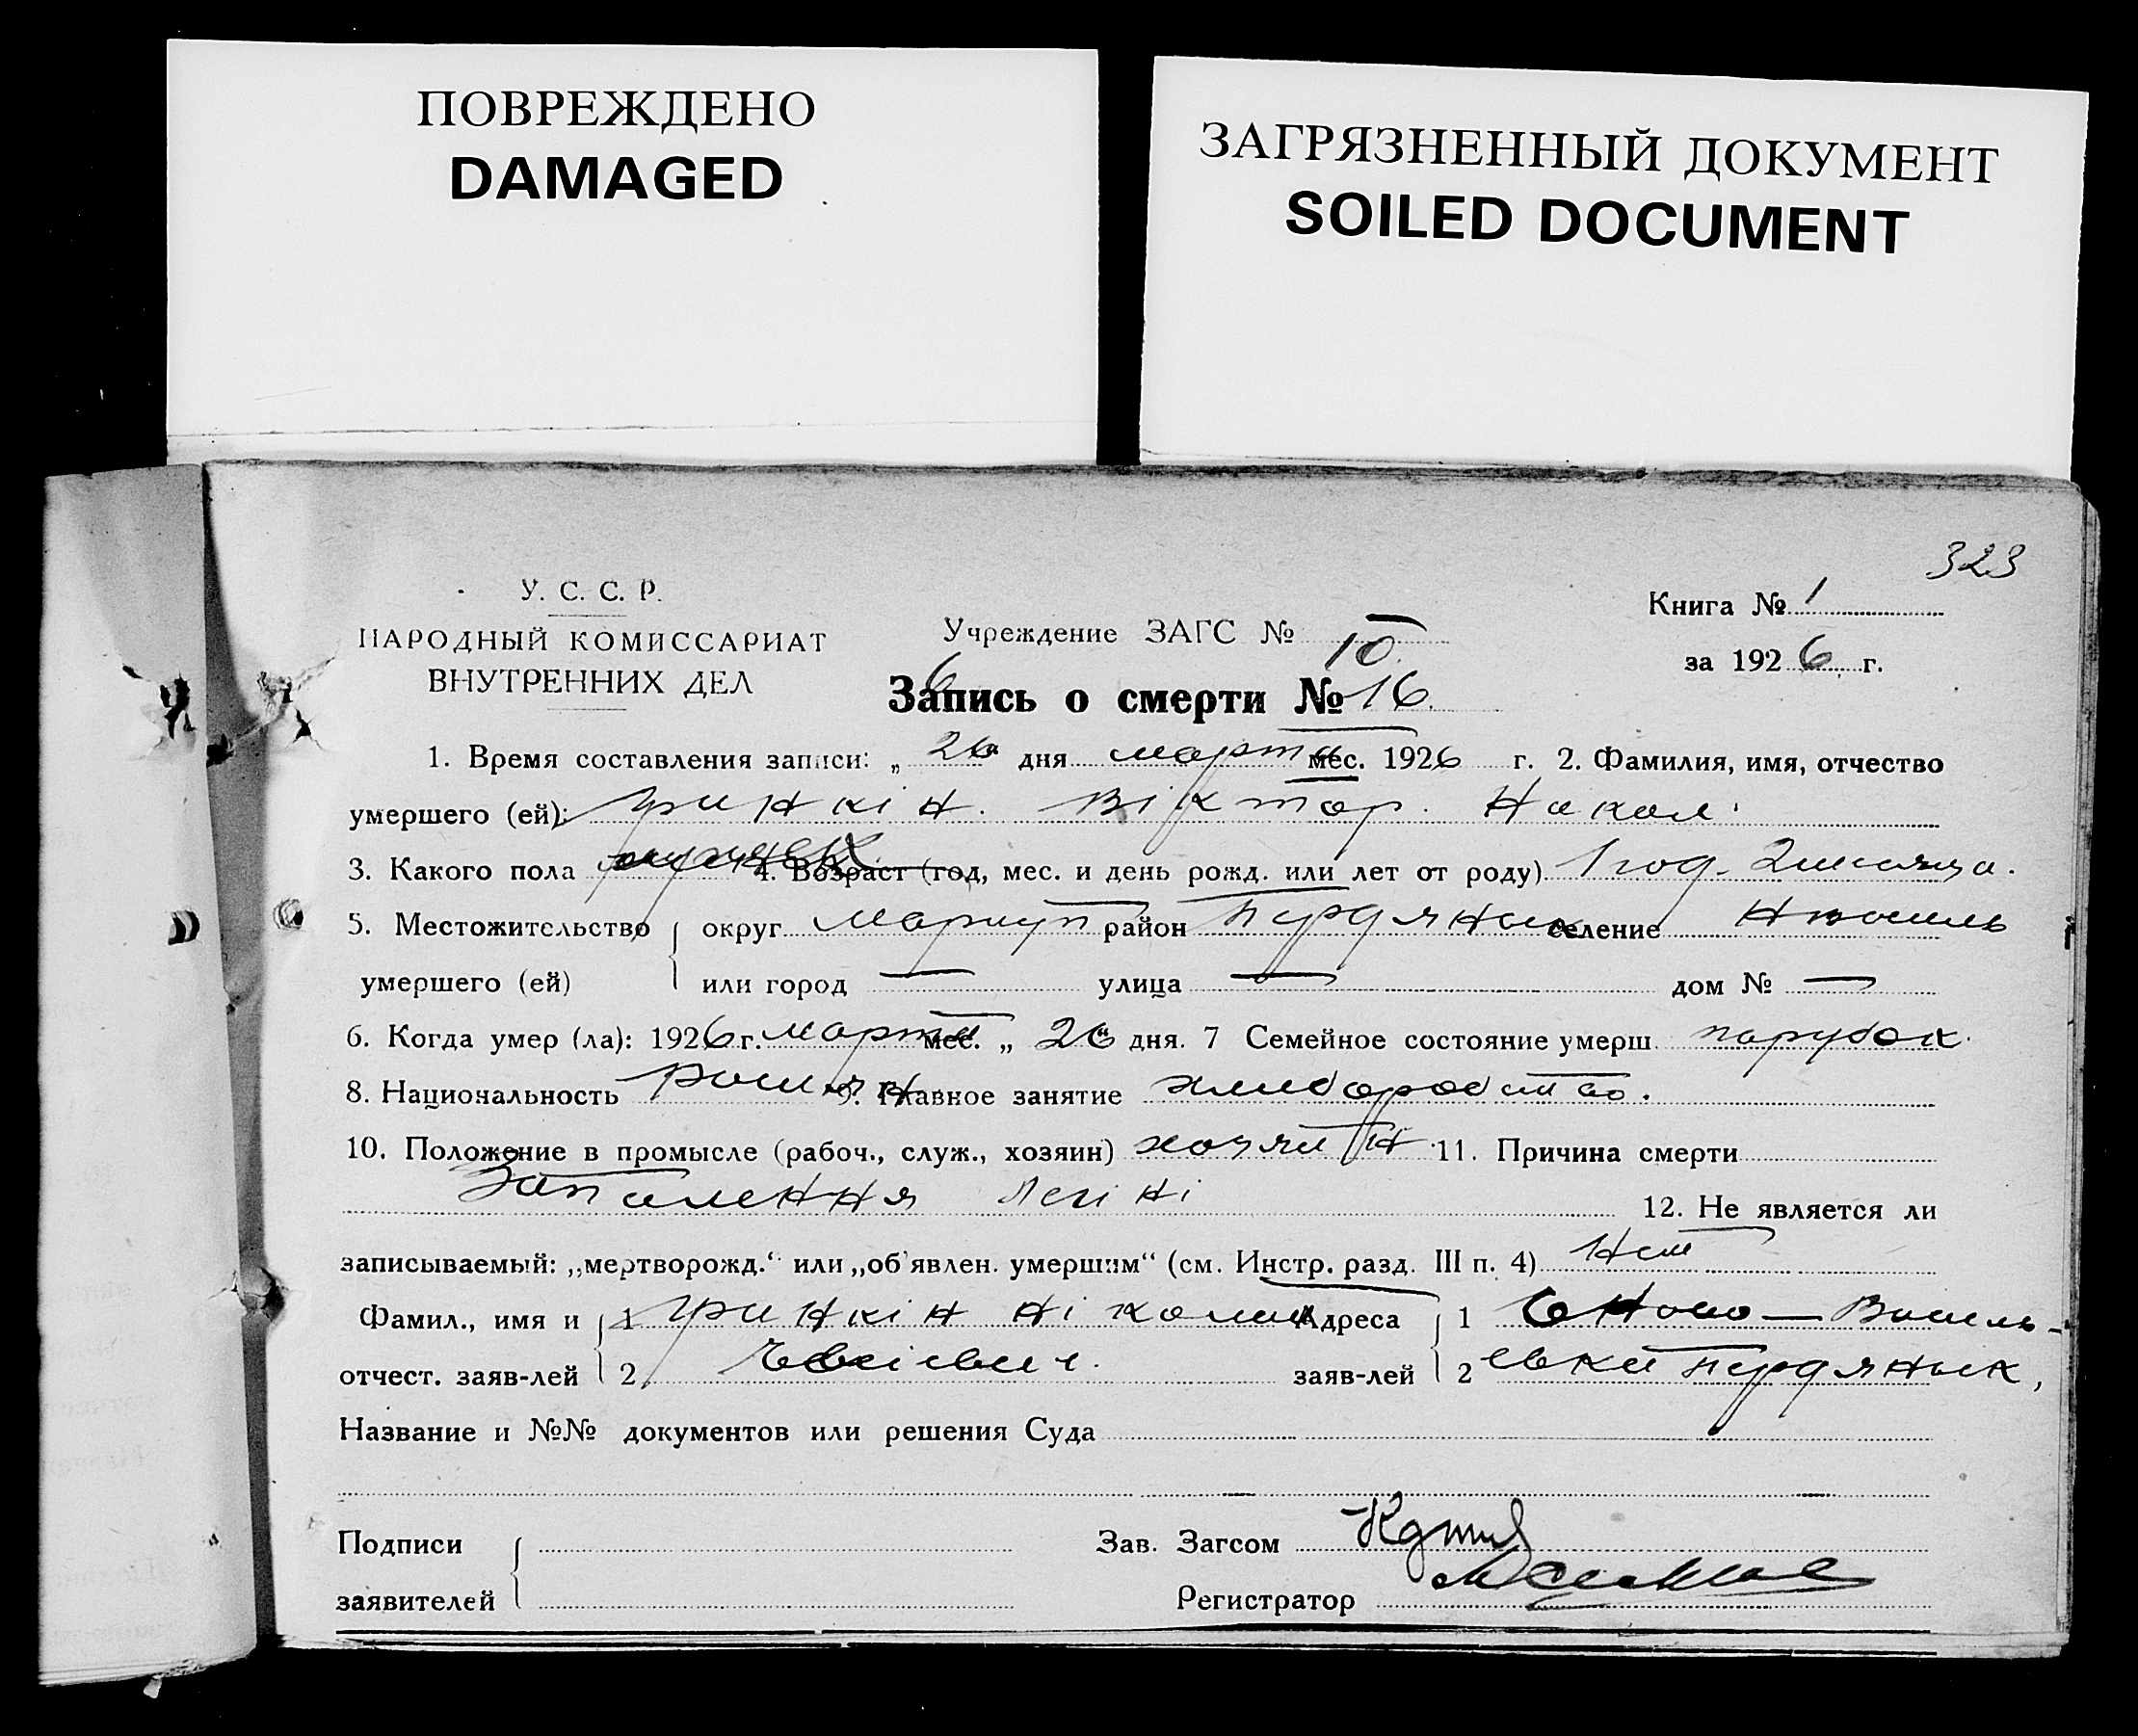 ПОВРЕЖДЕНО
DAMAGED
ЗАГРЯЗНЕННЫЙ ДОКУМЕНТ
SOILED DOCUMENT
323
У. С. С. Р.
НАРОДНЫЙ КОМИССАРИАТ
ВНУТРЕННИХ ДЕЛ
Учреждение ЗАГС № 10
Книга № 1
за 1926 г.
6
Запись о смерти № 16
1. Время составления записи: „ 26 дня марта мес. 1926 г. 2. Фамилия, имя, отчество
умершего (ей): Гринкін. Віктор. Накол.
3. Какого пола 4. Возраст (год, мес. и день рожд. или лет от роду) 1 год. 2 месяца.
5. Местожительство округ Мариуп район селение
умершего (ей) или город — улица — дом № —
6. Когда умер (ла): 1926 г. марта мес. „ 26 дня. 7 Семейное состояние умерш. парубок.
8. Национальность 9. Главное занятие хлиборобство.
10. Положение в промысле (рабоч., служ., хозяин) хозяін 11. Причина смерти
Запалення легіні 12. Не является ли
записываемый: „мертворожд.“ или „об'явлен. умершим“ (см. Инстр. разд. III п. 4) Нет
Фамил., имя и 1 Гринкін Адреса 1 С Ново — Василь-
отчест. заяв-лей 2 заяв-лей 2 евки
Название и №№ документов или решения Суда
Подписи Зав. Загсом
заявителей Регистратор